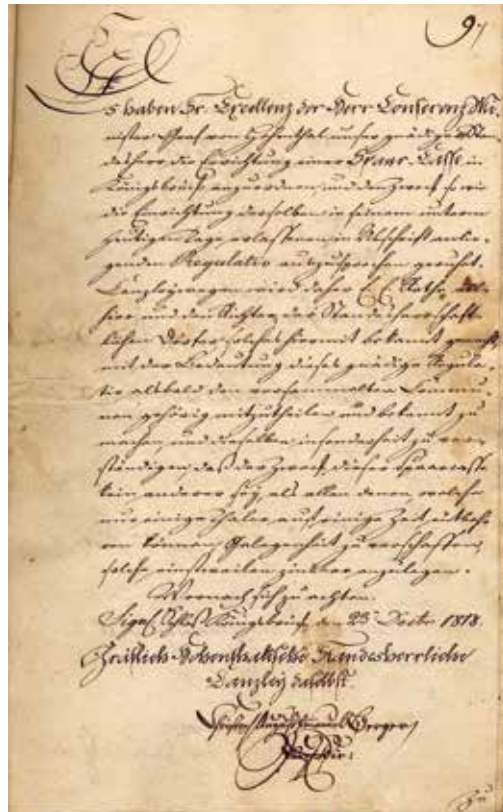 97
Es haben Sr. Excellenz der Herr Conferenz Mi-
nister Graf von Hohenthal unser gnädiger Stan-
desherr die Errichtung einer Spaar-Casse in
Königsbrück anzuordnen und den Zweck so wie
die Einrichtung derselben in seinem unterm
heutigen Tage erlassenen in Abschrift anlie-
genden Regulativ auszusprechen geruhet.
Canzleywegen wird daher E. E. Rathe
hier und den Richtern der Standesherrschaft-
lichen Dörfer solches hiermit bekannt gemacht,
mit der Bedeutung dieses gnädige Regula-
tiv alsbald den versammelten Commu-
nen gehörig mitzutheilen und bekannt zu
machen, und dieselben insonderheit zu ver-
ständigen, daß der Zweck dieser Spaarcasse
kein anderer sey, als allen denen, welche
nur einige Thaler auf einige Zeit entbeh-
ren können, Gelegenheit zu verschaffen,
solche einstweilen zinsbar anzulegen.
Wornach sich zu achten.
Sign. Schloß Königsbrück, den 23 Decbr 1818.
Gräflich-Hohenthalsche Standesherrliche
Canzley daselbst.